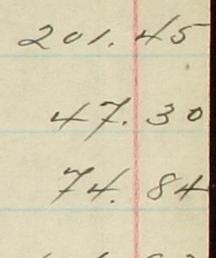 201.45
47.30
74.84